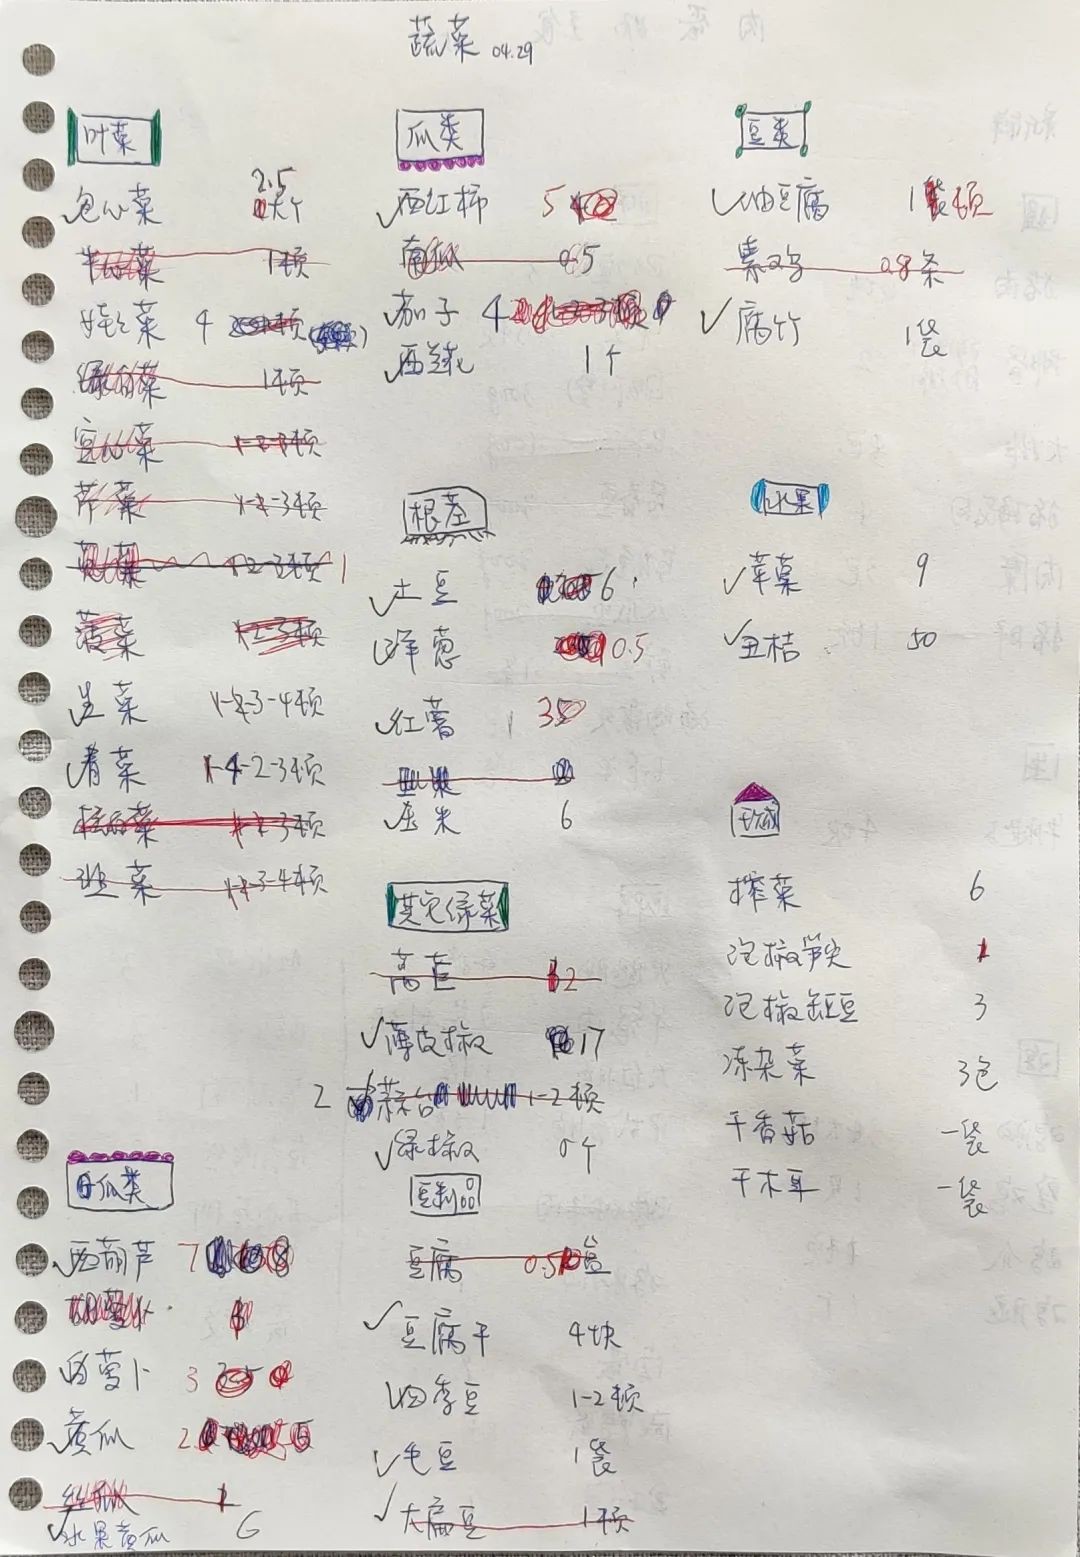 蔬菜 04.29
叶菜
包心菜 2.5 大个
1顿
娃娃菜 4
1顿
空心菜 1-2-3顿
芹菜 1-2-3顿
1-2-3顿 1
菠菜 1-2-3顿
生菜 1-2-3-4顿
✓青菜 1-4-2-3顿
菜 1-2-3顿
菜 1-2-3-4顿
白瓜类
✓西葫芦 7
胡萝卜
✓白萝卜 3
✓黄瓜 2.
丝瓜 1
✓水果黄瓜 6
瓜类
✓西红柿 5
南瓜 0.5
✓茄子 4
✓西兰花 1个
根茎
✓土豆 6
✓洋葱 0.5
✓红薯 1 3
玉米
✓玉米 6
其它绿菜
莴苣 2
✓薄皮椒 17
2 蒜台 1-2顿
✓绿椒 5个
豆制品
豆腐 0.5 盒
✓豆腐干 4块
✓四季豆 1-2顿
✓毛豆 1袋
✓大扁豆 1顿
豆类
✓油豆腐 1 顿
素鸡 0.8条
✓腐竹 1袋
水果
✓苹菓 9
✓丑桔 50
榨菜 6
泡椒笋尖 1
泡椒豇豆 3
冻杂菜 3包
干香菇 一袋
干木耳 一袋